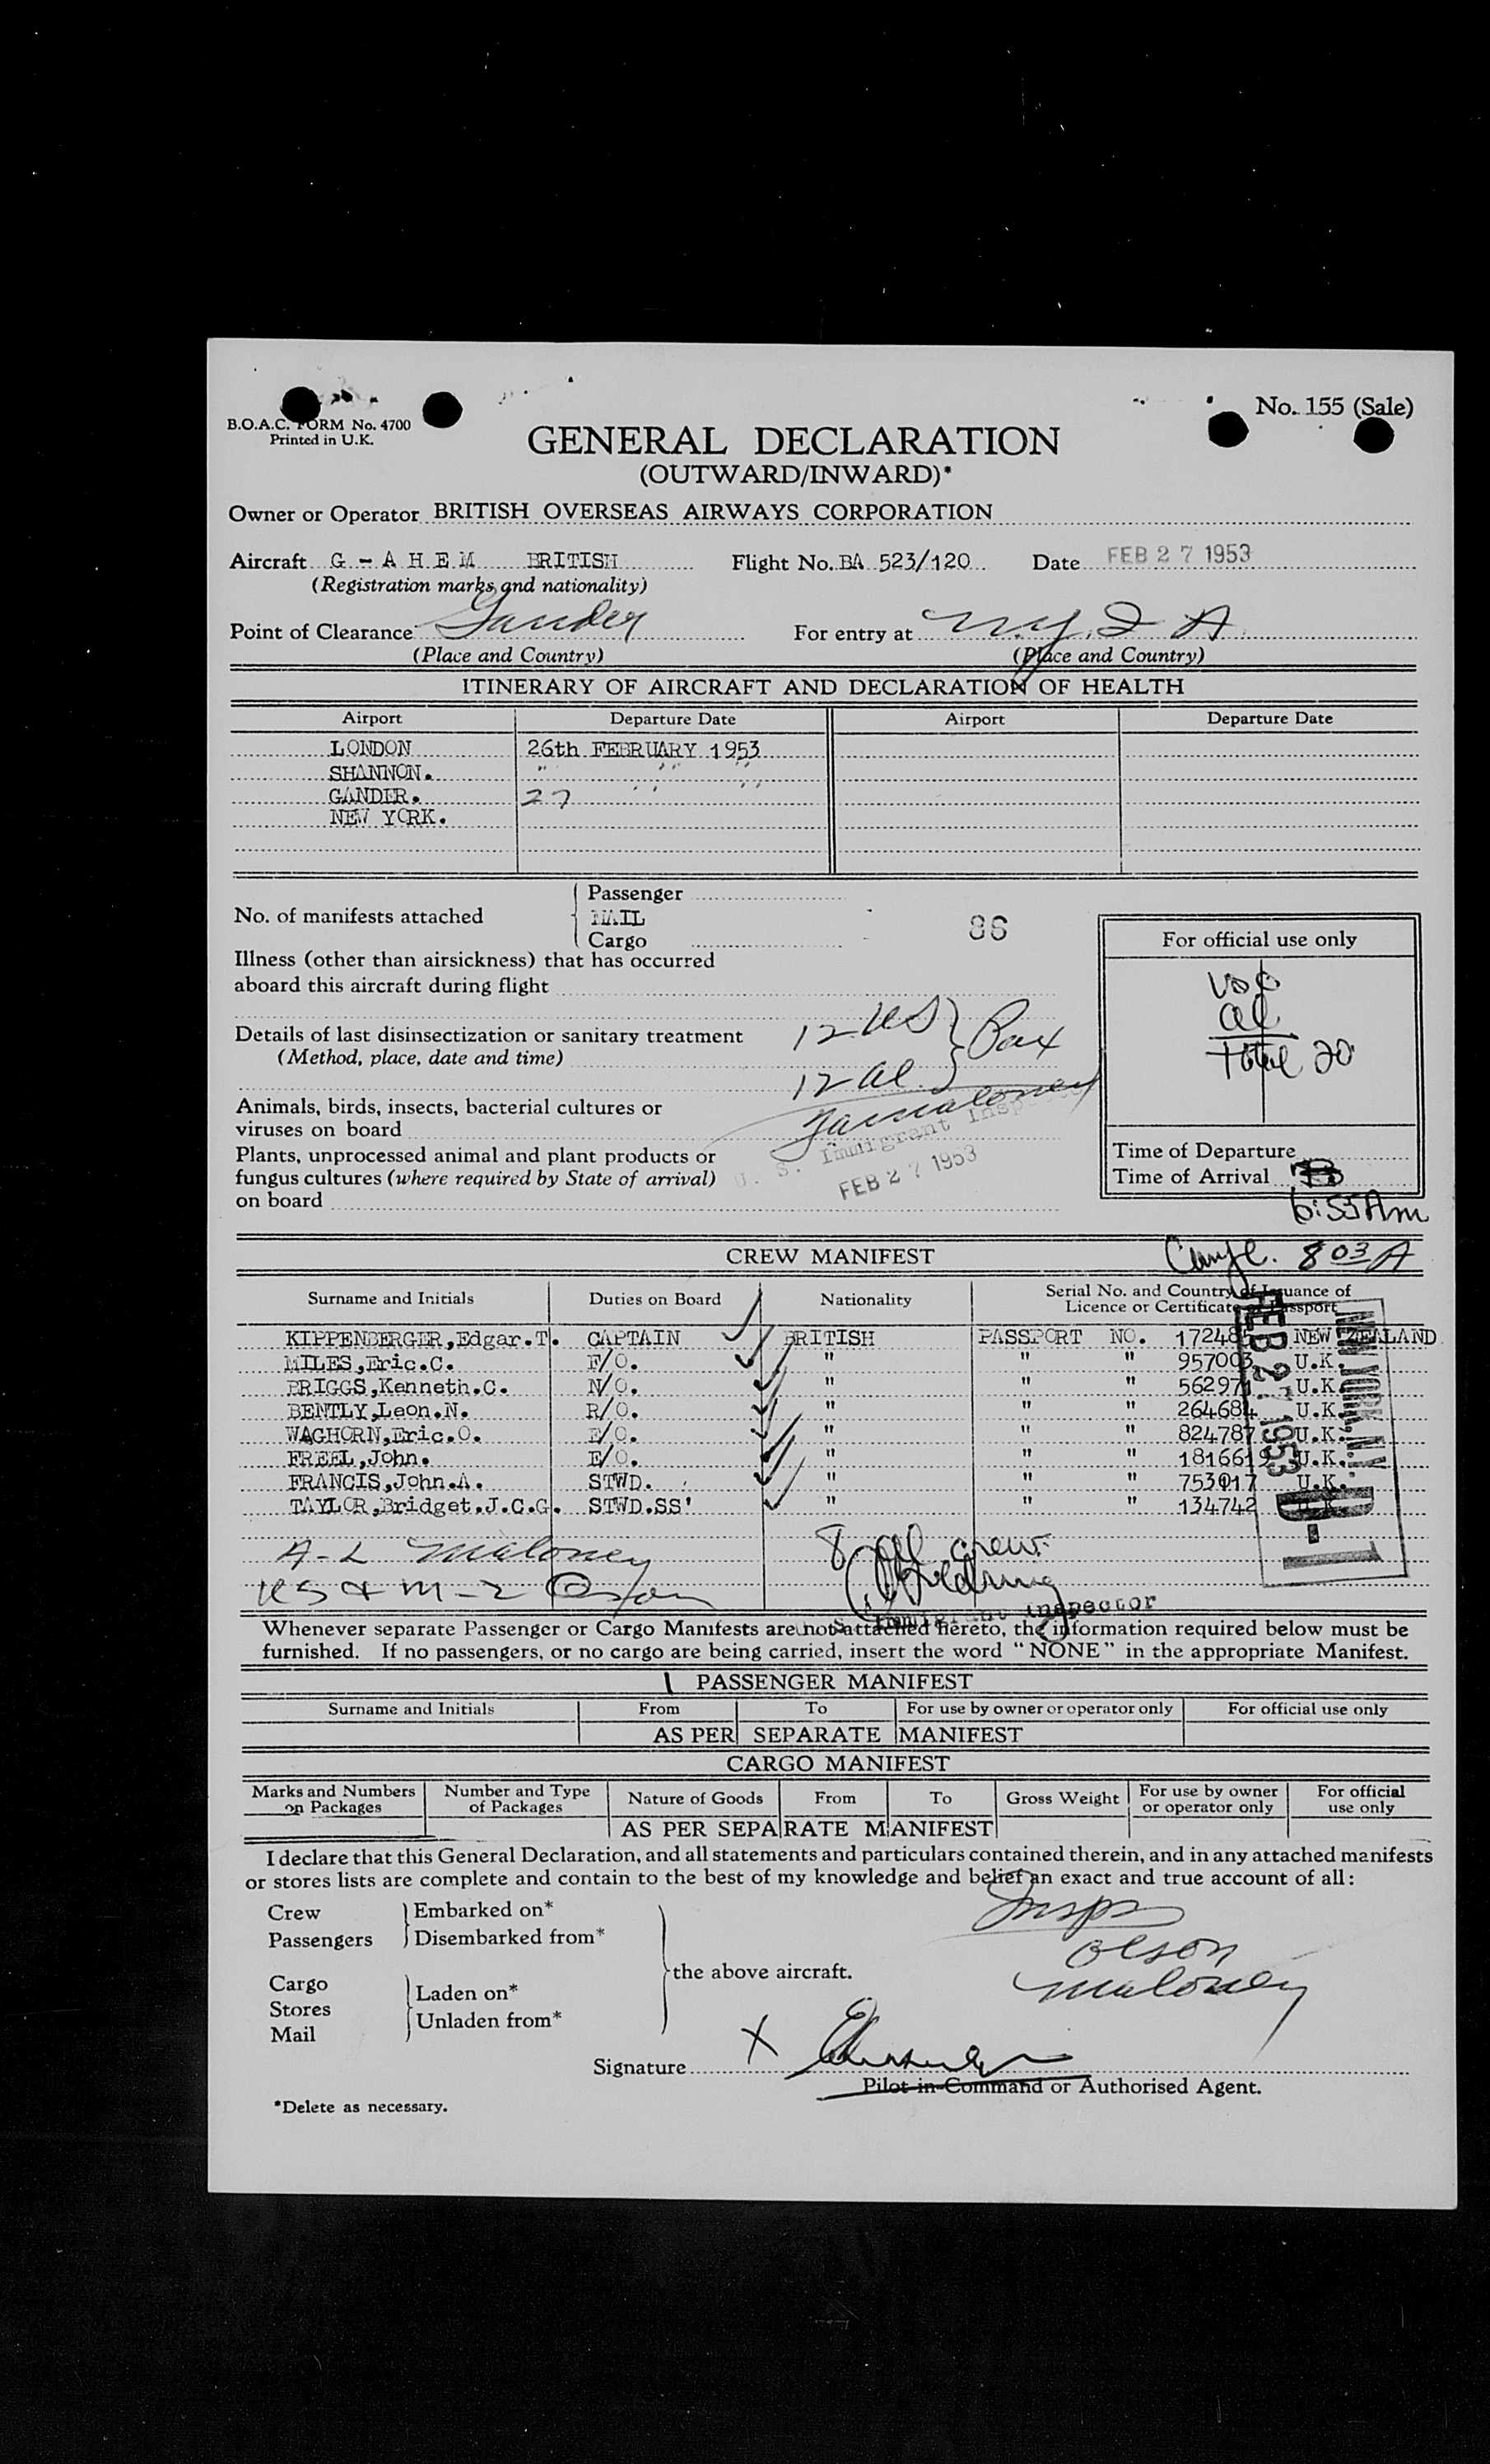 B.O.A.C. FORM No. 4700
Printed in U.K.
No. 155 (Sale)
GENERAL DECLARATION
(OUTWARD/INWARD)*
Owner or Operator BRITISH OVERSEAS AIRWAYS CORPORATION
Aircraft G - A H E M BRITISH Flight No. BA 523/120 Date FEB 27 1953
(Registration marks and nationality)
Point of Clearance Gander For entry at N.Y. I A
(Place and Country) (Place and Country)
ITINERARY OF AIRCRAFT AND DECLARATION OF HEALTH
Airport Departure Date Airport Departure Date
LONDON 26th FEBRUARY 1953
SHANNON. " " "
GANDER. 27 " "
NEW YORK.
No. of manifests attached
Passenger
MAIL
Cargo
86
Illness (other than airsickness) that has occurred
aboard this aircraft during flight
Details of last disinsectization or sanitary treatment
(Method, place, date and time)
12 US
12 al. } Pax
Animals, birds, insects, bacterial cultures or
viruses on board
Plants, unprocessed animal and plant products or
fungus cultures (where required by State of arrival)
on board
U. S. Immigrant Inspector
FEB 27 1953
For official use only
USC
al
Total 20
Time of Departure
Time of Arrival
6:55 Am
803 A
CREW MANIFEST
Surname and Initials Duties on Board Nationality Serial No. and Country of Issuance of
Licence or Certificate or Passport
KIPPENBERGER,Edgar.T. CAPTAIN BRITISH PASSPORT NO. NEW ZEALAND
MILES,Eric.C. F/O. " " " 957003 U.K.
BRIGGS,Kenneth.C. N/O. " " " U.K.
BENTLY,Leon.N. R/O. " " " 264684 U.K.
WAGHORN,Eric.O. E/O. " " " 824787 U.K.
FREEL,John. E/O. " " " 1816619 U.K.
FRANCIS,John.A. STWD. " " " 753017 U.K.
TAYLOR,Bridget.J.C.G. STWD.SS' " " " 134742 U.K.
NEW YORK, N.Y.
FEB 27 1953
D-1
A-L Maloney
8 al crew
US & M-2 Olson
U.S. Immigrant Inspector
Whenever separate Passenger or Cargo Manifests are not attached hereto, the information required below must be
furnished. If no passengers, or no cargo are being carried, insert the word "NONE" in the appropriate Manifest.
PASSENGER MANIFEST
Surname and Initials From To For use by owner or operator only For official use only
AS PER SEPARATE MANIFEST
CARGO MANIFEST
Marks and Numbers on Packages Number and Type of Packages Nature of Goods From To Gross Weight For use by owner or operator only For official use only
AS PER SEPARATE MANIFEST
I declare that this General Declaration, and all statements and particulars contained therein, and in any attached manifests
or stores lists are complete and contain to the best of my knowledge and belief an exact and true account of all:
Crew
Passengers
Embarked on*
Disembarked from*
Cargo
Stores
Mail
Laden on*
Unladen from*
the above aircraft.
Insps
Olson
Maloney
Signature X
Pilot-in-Command or Authorised Agent.
*Delete as necessary.